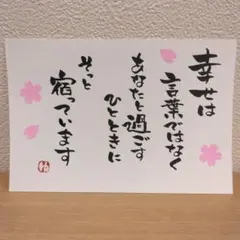 幸せは
言葉ではなく
あなたと過ごす
ひとときに
そっと
宿っています